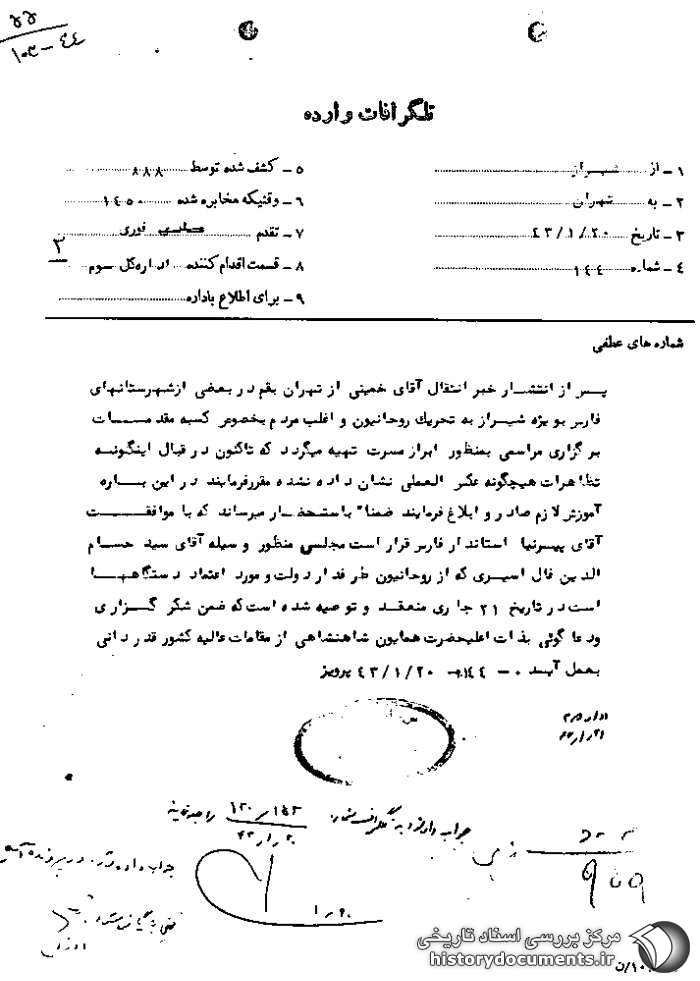 ۴۴-۱۰۳
تلگرافات وارده
۱ - از شیراز
۲ - به تهران
۳ - تاریخ ۴۳/۱/۲۰
۴ - شماره ۱۴۴
۵ - کشف شده توسط ۸۸۸
۶ - وقتیکه مخابره شده ۱۴۵۰
۷ - تقدم خیلی فوری
۸ - قسمت اقدام کننده اداره کل سوم
۳
۹ - برای اطلاع باداره
شماره های عطفی
پس از انتشار خبر انتقال آقای خمینی از تهران بقم در بعضی از شهرستانهای
فارس بویژه شیراز به تحریک روحانیون و اغلب مردم بخصوص کسبه مقدمات
برگزاری مراسمی بمنظور ابراز مسرت تهیه میگردد که تاکنون در قبال اینگونه
تظاهرات هیچگونه عکس العملی نشان داده نشده مقررفرمایند در این باره
آموزش لازم صادر و ابلاغ فرمایند ضمنا" باستحضار میرساند که با موافقت
آقای پیرنیا استاندار فارس قرار است مجلسی منظور و سیله آقای سید حسام
الدین فال اسیری که از روحانیون طرفدار دولت و مورد اعتماد دستگاهها
است در تاریخ ۲۱ جاری منعقد و توصیه شده است که ضمن شکر گزاری
ودعا گوئی بذات اعلیحضرت همایون شاهنشاهی از مقامات عالیه کشور قدردانی
بعمل آید ۰ - ۱۴۴ - ۴۳/۱/۲۰ پرویز
جواب داده شد به تلگراف شماره ۱۲۰/۱۴۳ مراجعه نمایند
مرکز بررسی اسناد تاریخی
historydocuments.ir